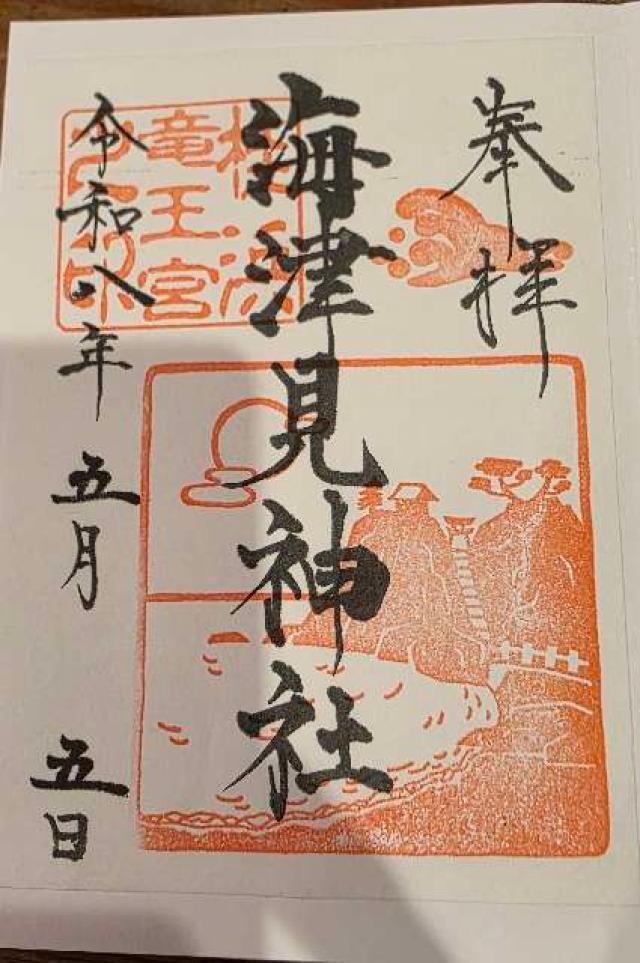 奉拝
海津見神社
竜王宮
令和八年 五月 五日